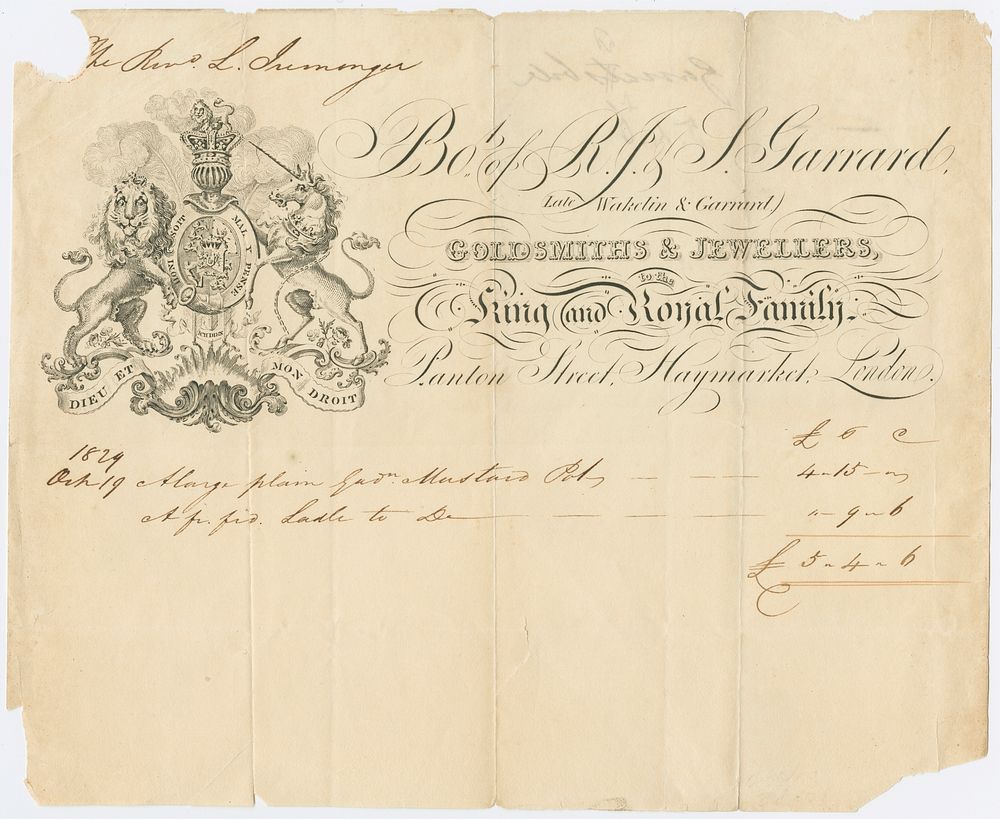 The Revd. L. Iremonger
Bot. of R. J. & S. Garrard,
(Late Wakelin & Garrard)
GOLDSMITHS & JEWELLERS,
to the
King and Royal Family.
Panton Street, Haymarket, London.
HONI SOIT MAL Y PENSE
ICH DIEN
DIEU ET MON DROIT
£ s d
1824
Oct 19 A large plain Gadn. Mustard Pot 4 - 15 - "
A fr. fid. Ladle to Do " - 9 - 6
£ 5 - 4 - 6